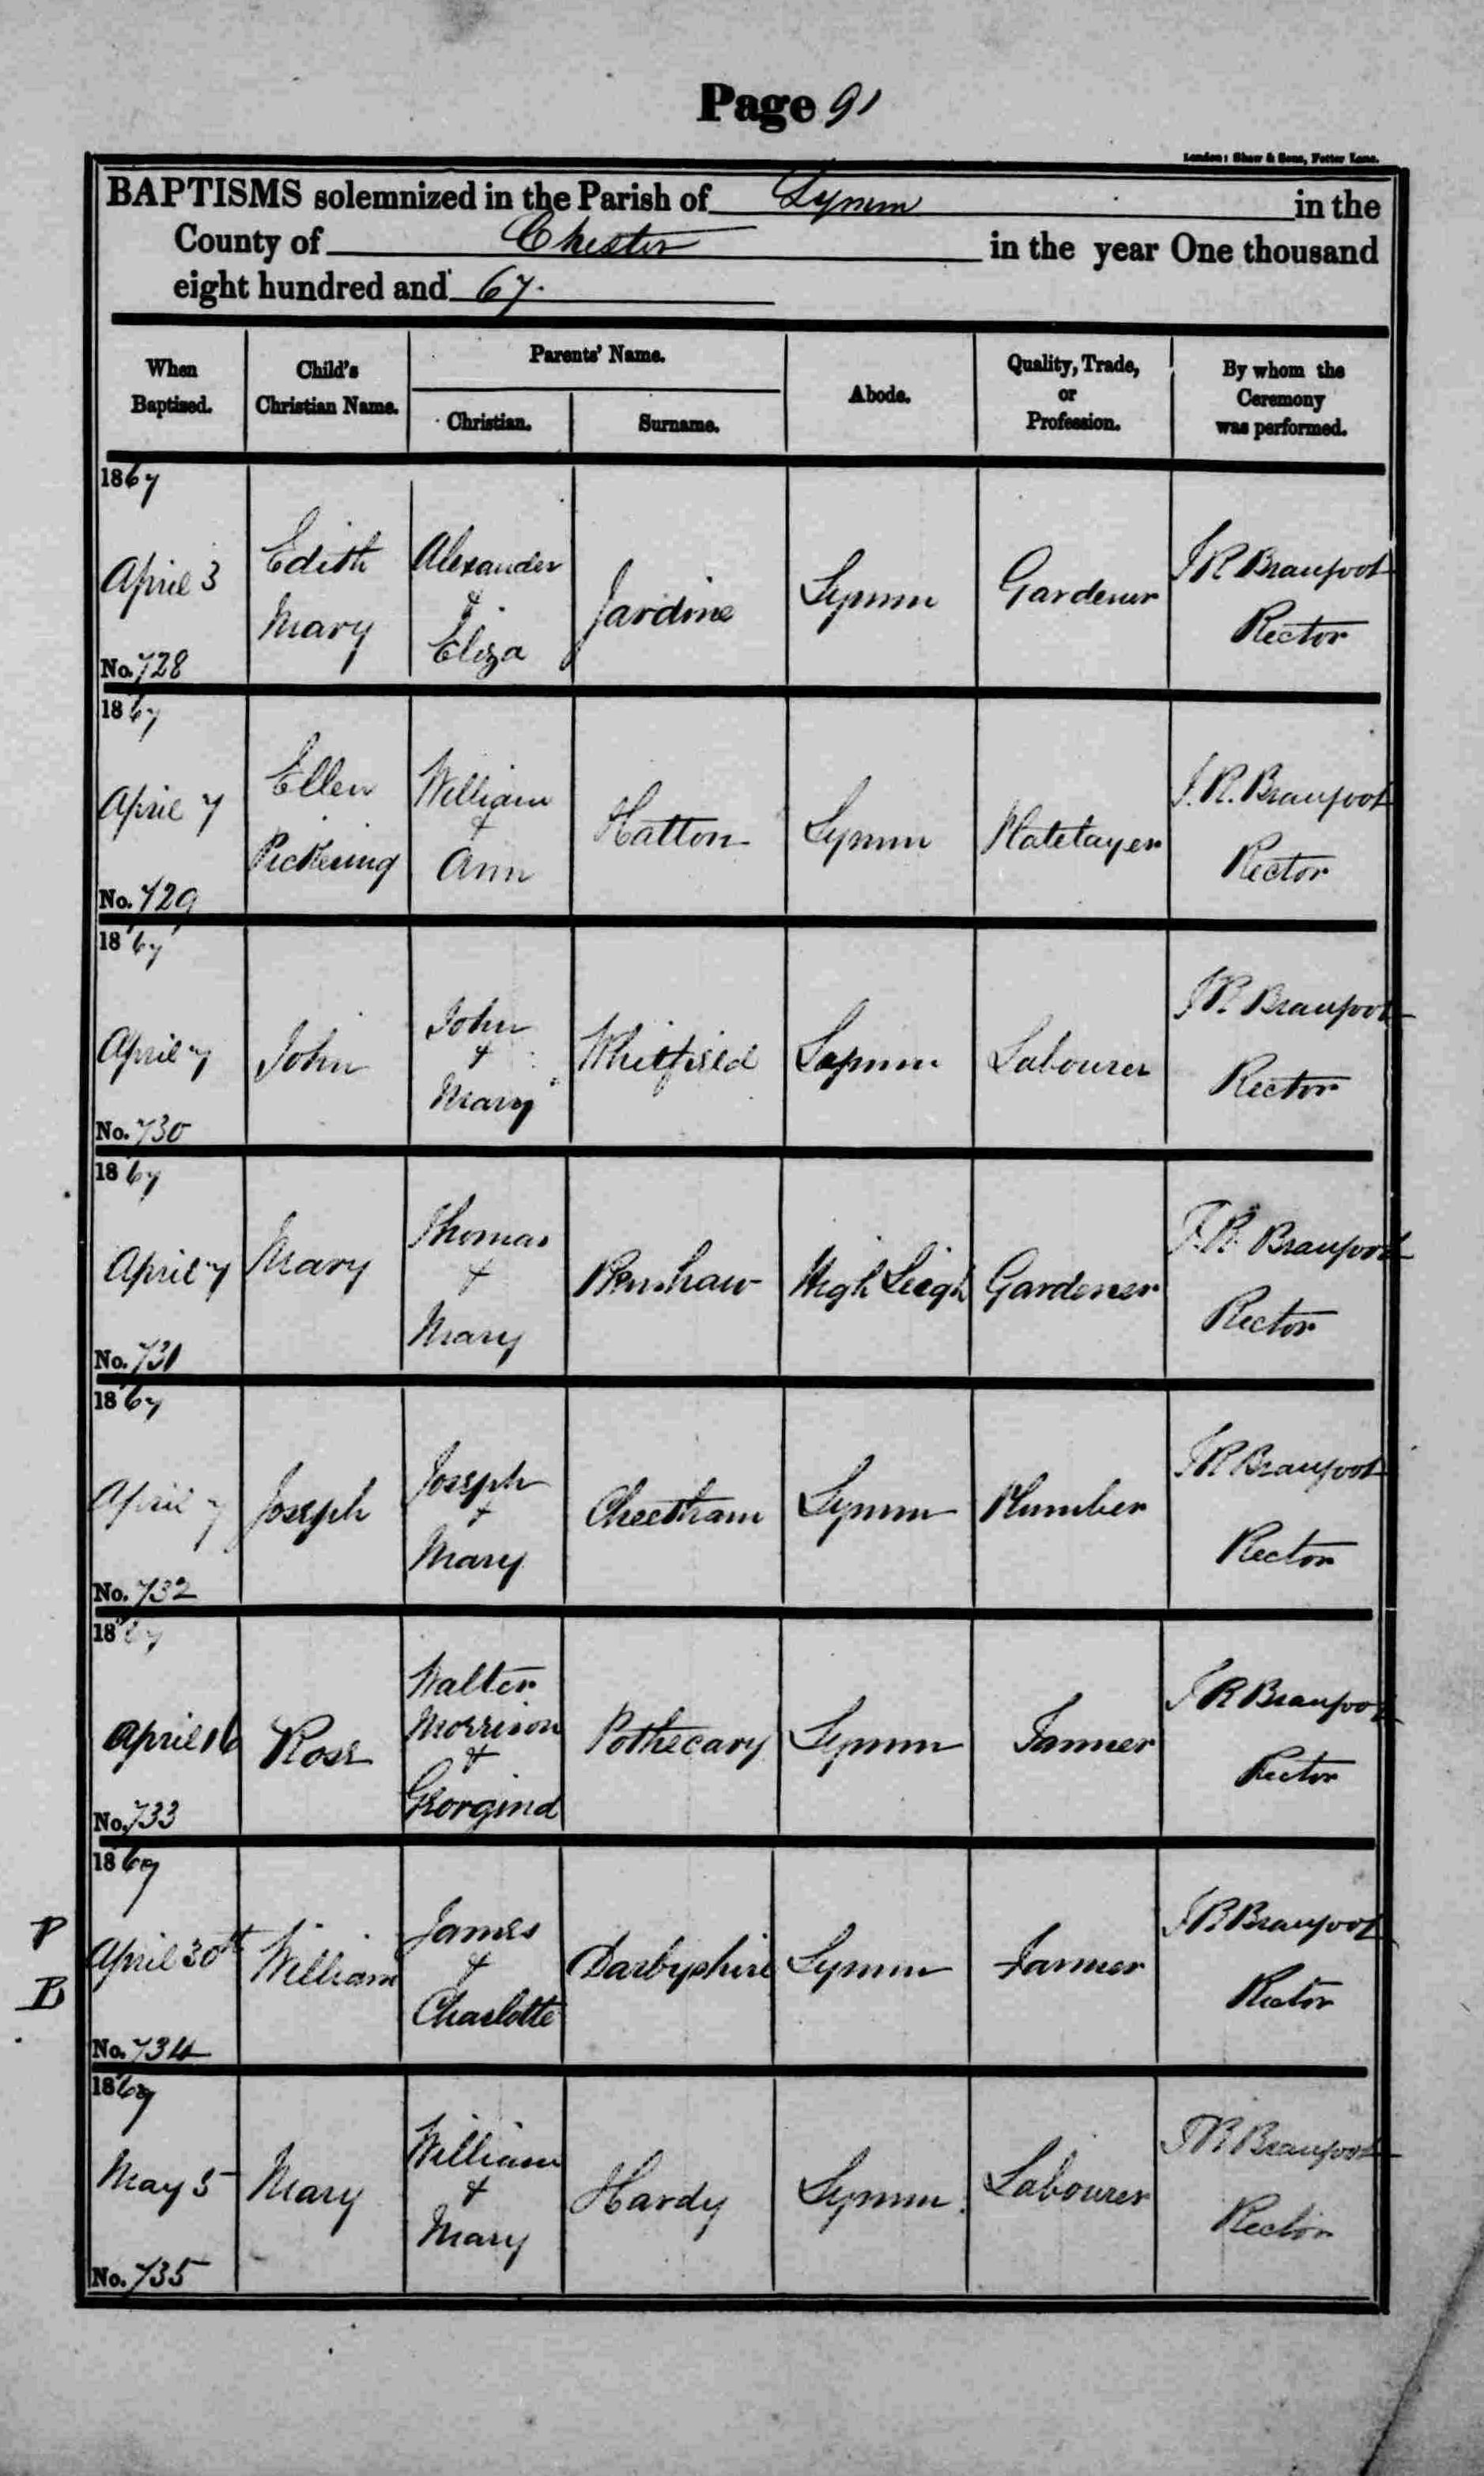 Page 91
London: Shaw & Sons, Fetter Lane.
BAPTISMS solemnized in the Parish of Lymm in the
County of Chester in the year One thousand
eight hundred and 67.
When Baptized.
Child's Christian Name.
Parents' Name.
Christian.
Surname.
Abode.
Quality, Trade, or Profession.
By whom the Ceremony was performed.
1867
April 3
No. 728
Edith
Mary
Alexander
&
Eliza
Jardine
Lymm
Gardener
J R Beaufoot
Rector
1867
April 7
No. 729
Ellen
Pickering
William
&
Ann
Hatton
Lymm
Platelayer
J. R. Beaufoot
Rector
1867
April 7
No. 730
John
John
&
Mary
Whitfield
Lymm
Labourer
J R Beaufoot
Rector
1867
April 7
No. 731
Mary
Thomas
&
Mary
Renshaw
High Leigh
Gardener
J. R. Beaufoot
Rector
1867
April 7
No. 732
Joseph
Joseph
&
Mary
Cheetham
Lymm
Plumber
J R Beaufoot
Rector
1867
April 16
No. 733
Rose
Walter
Morrison
&
Georgina
Pothecary
Lymm
Farmer
J R Beaufoot
Rector
P
B
1867
April 30th
No. 734
William
James
&
Charlotte
Darbyshire
Lymm
Farmer
J R Beaufoot
Rector
1867
May 5
No. 735
Mary
William
&
Mary
Hardy
Lymm
Labourer
J R Beaufoot
Rector